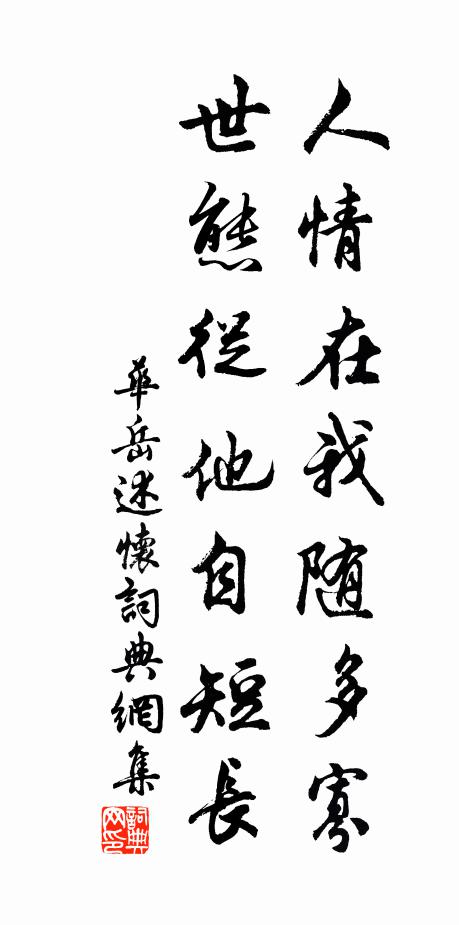 人情在我随多寡
世態従他自短長
華岳述懷詞典網集
詞典网印